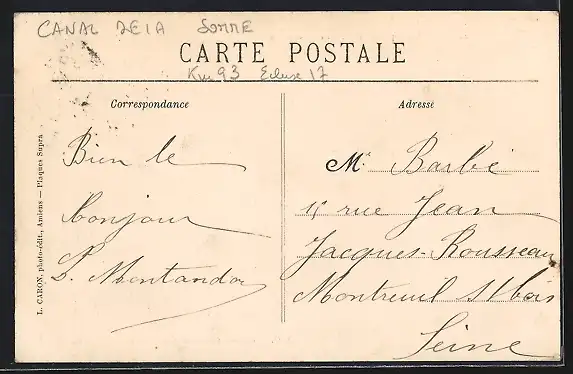 CANAL DE LA SOMME
CARTE POSTALE
Km 93 Ecluse 17
Correspondance
Adresse
Bien le
bonjour
L. Montandon
Mr Barbé
15 rue Jean
Jacques-Rousseau
Montreuil s/ bois
Seine
L. CARON, photo-édit., Amiens — Plaques Supra